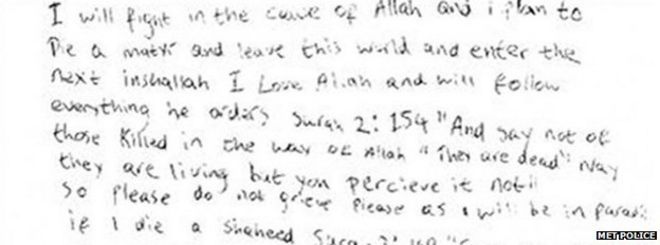 I will fight in the cause of Allah and i plan to
Die a matri and leave this world and enter the
next inshallah I Love Allah and will follow
everything he orders Surah 2:154 "And say not of
those killed in the way of Allah "They are dead" Nay
they are living but you percieve it not"
so please do not grieve please as i will be in paradi
if I die a Shaheed Surah
MET POLICE